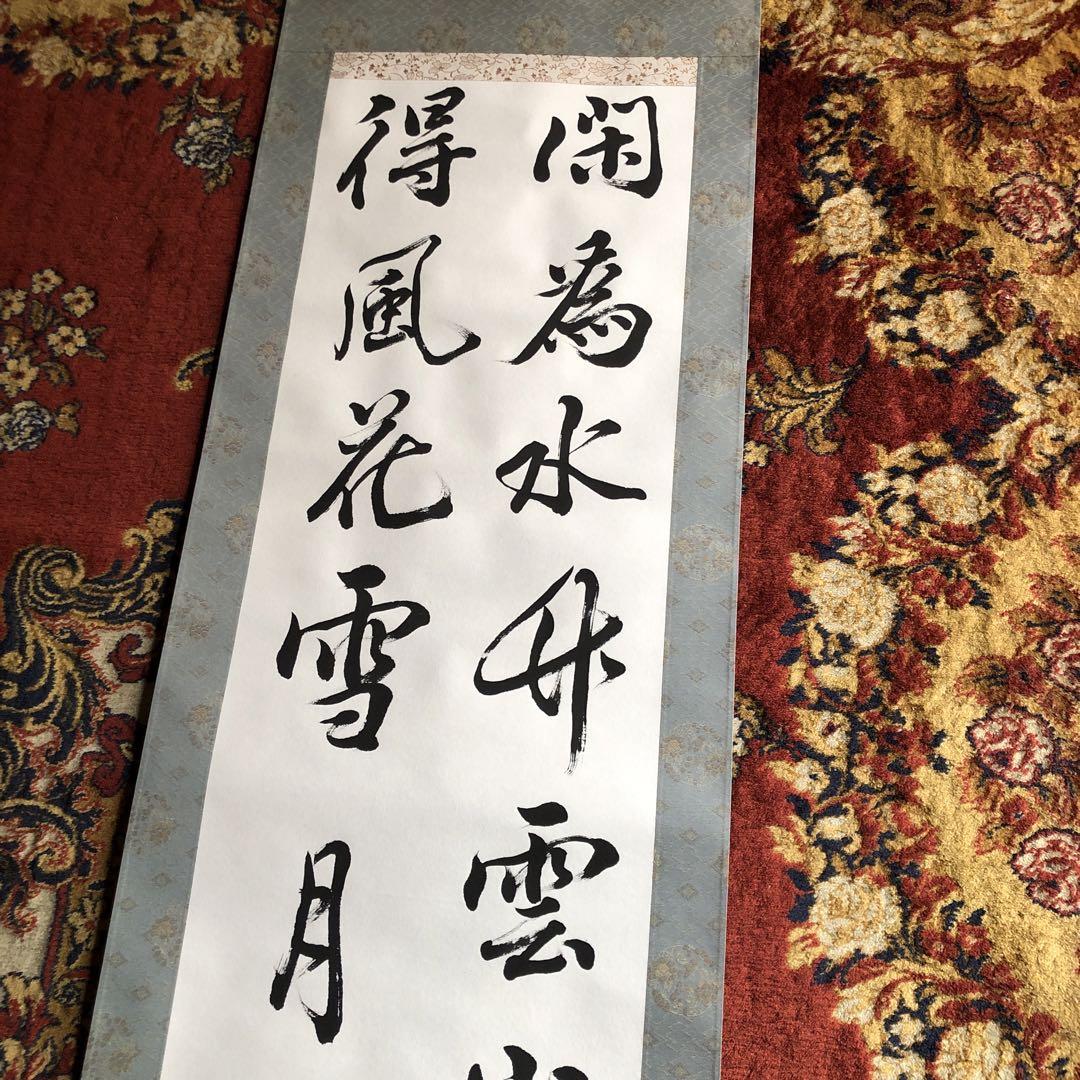 閑為水竹雲
得風花雪月